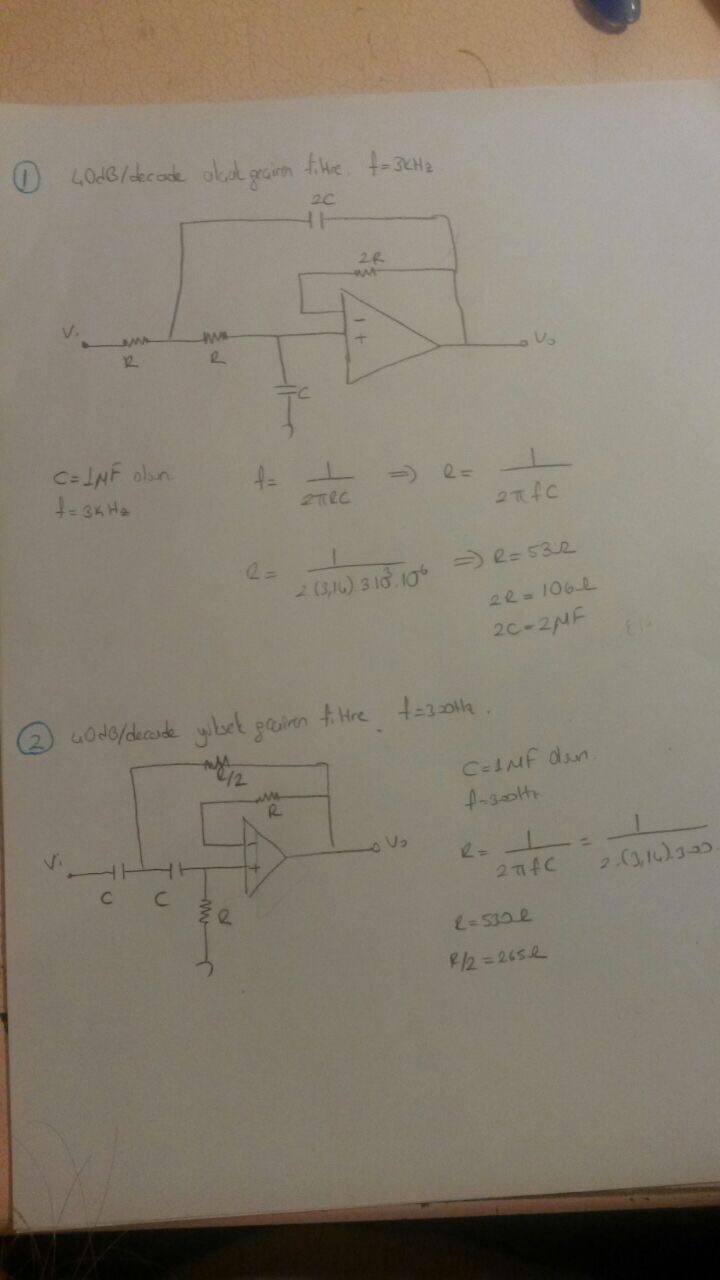 1 40dB/decade alçak geçiren filtre. f=3kHz
2C
2R
Vi
R
R
-
+
Vo
C
C=1µF olsun.
f=3kHz
f= 1/2πRC ⇒ R= 1/2πfC
R= 1/2.(3,14).3.10³.10⁻⁶ ⇒ R=53Ω
2R=106Ω
2C=2µF
2 40dB/decade yüksek geçiren filtre. f=300Hz.
R/2
R
Vi
C
C
-
+
Vo
R
C=1µF olsun.
f=300Hz
R= 1/2πfC = 1/2.(3,14).300.
R=530Ω
R/2=265Ω